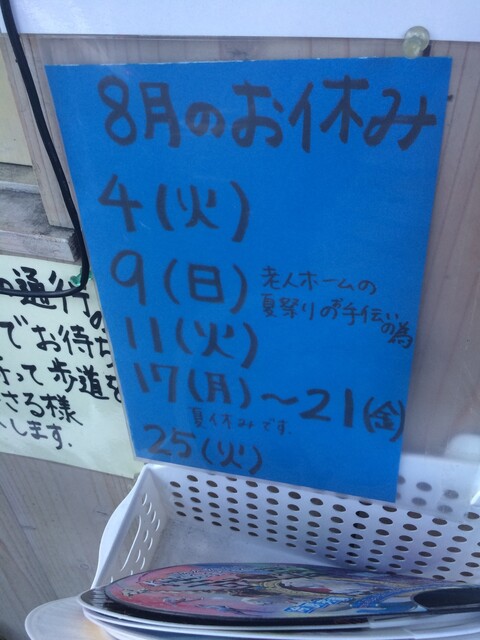 8月のお休み
4(火)
9(日)
老人ホームの
夏祭りのお手伝い
の為
11(火)
17(月)〜21(金)
夏休みです.
25(火)
の通行
でお待ち
って歩道を
さる様
します.